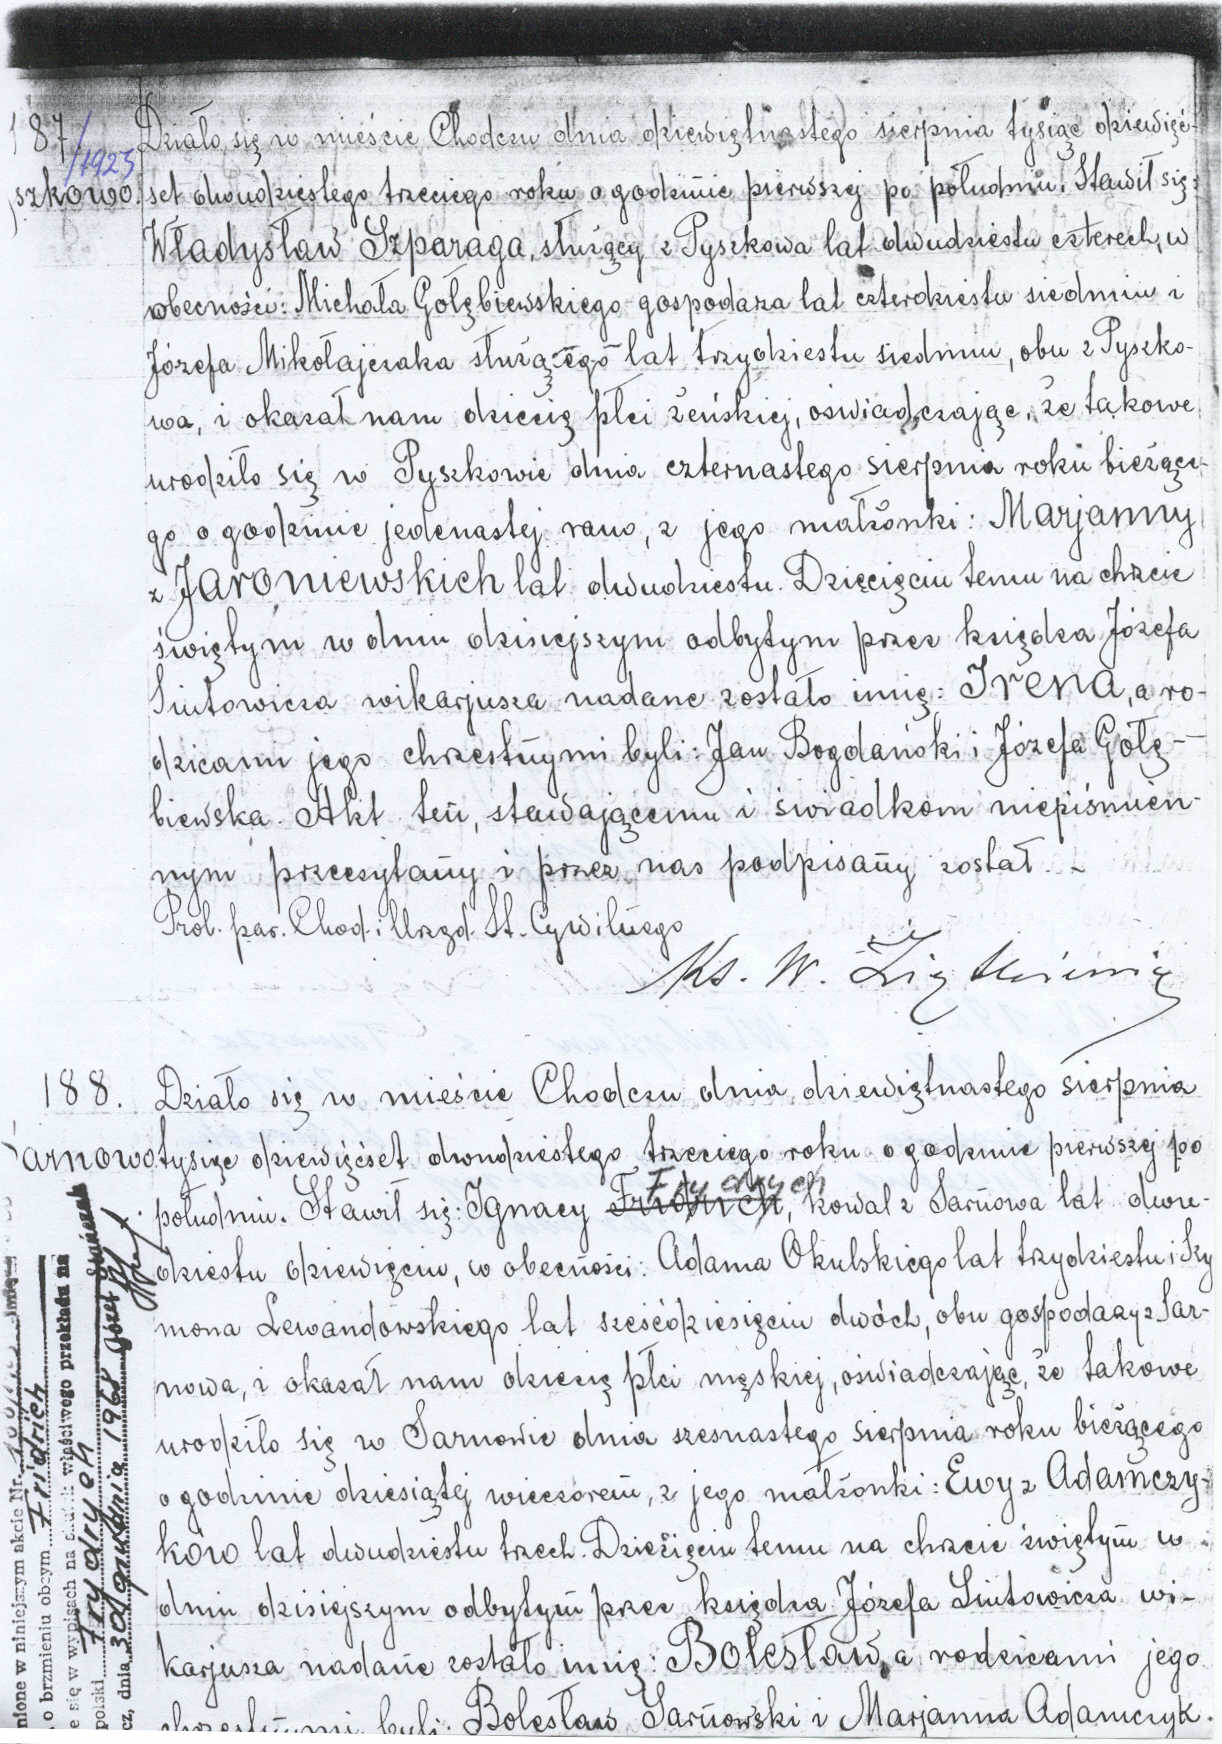 187
/1923
Działo się w mieście Chodczu dnia dziewiętnastego sierpnia tysiąc dziewięć-
szkowo.
set dwudziestego trzeciego roku o godzinie pierwszej po południu. Stawił się:
Władysław Szparaga, służący z Pyszkowa lat dwudziestu czterech, w
obecności: Michała Gołębiewskiego gospodarza lat czterdziestu siedmiu i
Józefa Mikołajczaka służącego lat trzydziestu siedmiu, obu z Pyszko-
wa, i okazał nam dziecię płci żeńskiej, oświadczając, że takowe
urodziło się w Pyszkowie dnia czternastego sierpnia roku bieżące-
go o godzinie jedenastej rano, z jego małżonki: Marjanny
z Jaroniewskich lat dwudziestu. Dziecięciu temu na chrzcie
świętym w dniu dzisiejszym odbytym przez księdza Józefa
Sintowicza wikarjusza nadane zostało imię: Irena, a ro-
dzicami jego chrzestnymi byli: Jan Bogdański i Józefa Gołę-
biewska. Akt ten, stawającemu i świadkom niepiśmien-
nym przeczytany i przez nas podpisany został. -
Prob. par. Chod. i Urzęd. St. Cywilnego
Ks. W.
188.
Działo się w mieście Chodczu dnia dziewiętnastego sierpnia
arnowo
tysiąc dziewięćset dwudziestego trzeciego roku o godzinie pierwszej po
Frydrych
południu. Stawił się: Ignacy Fridrich, kowal z Sarnowa lat dwu-
dziestu dziewięciu, w obecności: Adama Okulskiego lat trzydziestu i Szy
mona Lewandowskiego lat sześćdziesięciu dwóch, obu gospodarzy z Sar-
nowa, i okazał nam dziecię płci męskiej, oświadczając, że takowe
urodziło się w Sarnowie dnia szesnastego sierpnia roku bieżącego
o godzinie dziesiątej wieczorem, z jego małżonki: Ewy z Adamczy-
ków lat dwudziestu trzech. Dziecięciu temu na chrzcie świętym w
dniu dzisiejszym odbytym przez księdza Józefa Sintowicza wi-
karjusza nadane zostało imię: Bolesław, a rodzicami jego
chrzestnymi byli: Bolesław Sarnowski i Marjanna Adamczyk.
nione w niniejszym akcie Nr.
o brzmieniu obcym Fridrich
e się w wypisach na właściwego przekładu na
polski Frydrych
cz, dnia 30 grudnia 1968